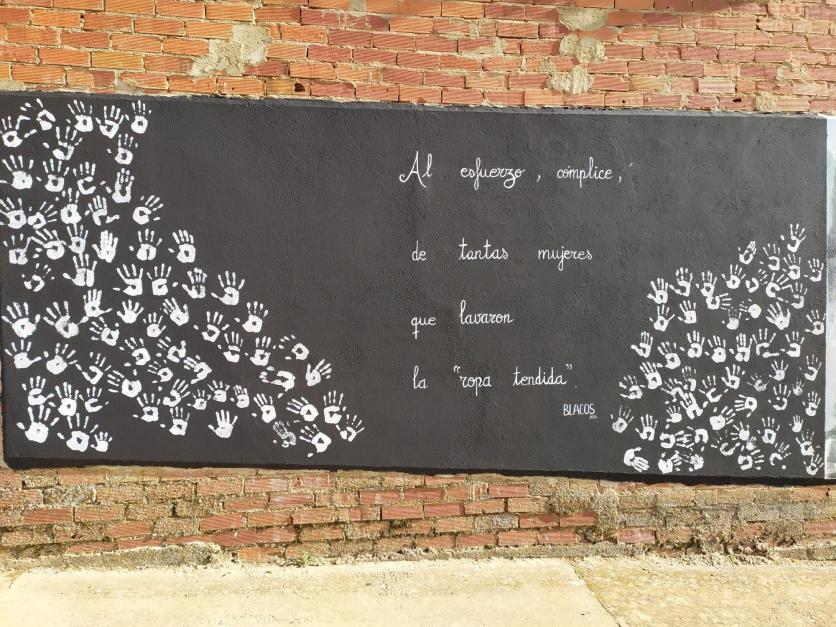 Al esfuerzo, cómplice,
de tantas mujeres
que lavaron
la "ropa tendida".
BLACOS